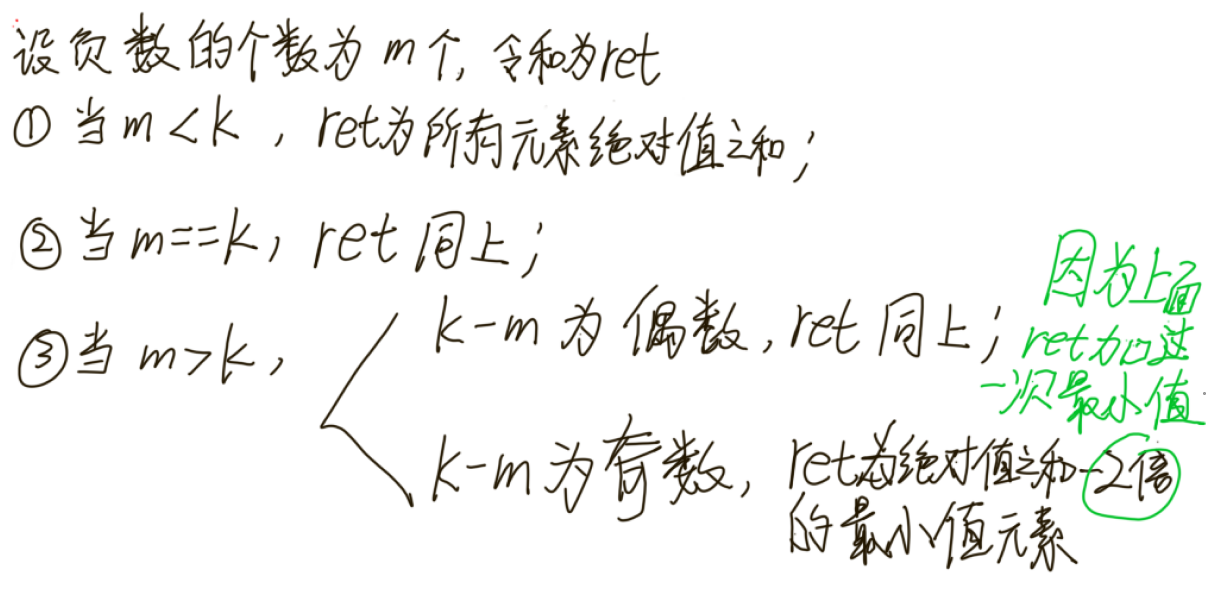 设负数的个数为 m个, 令和为ret
① 当 m < k , ret为所有元素绝对值之和;
② 当 m==k, ret 同上;
③ 当 m>k,
k-m 为 偶数, ret 同上;
k-m 为 奇数, ret为绝对值之和-2倍
的最小值元素
因为上面
ret加过
一次最小值